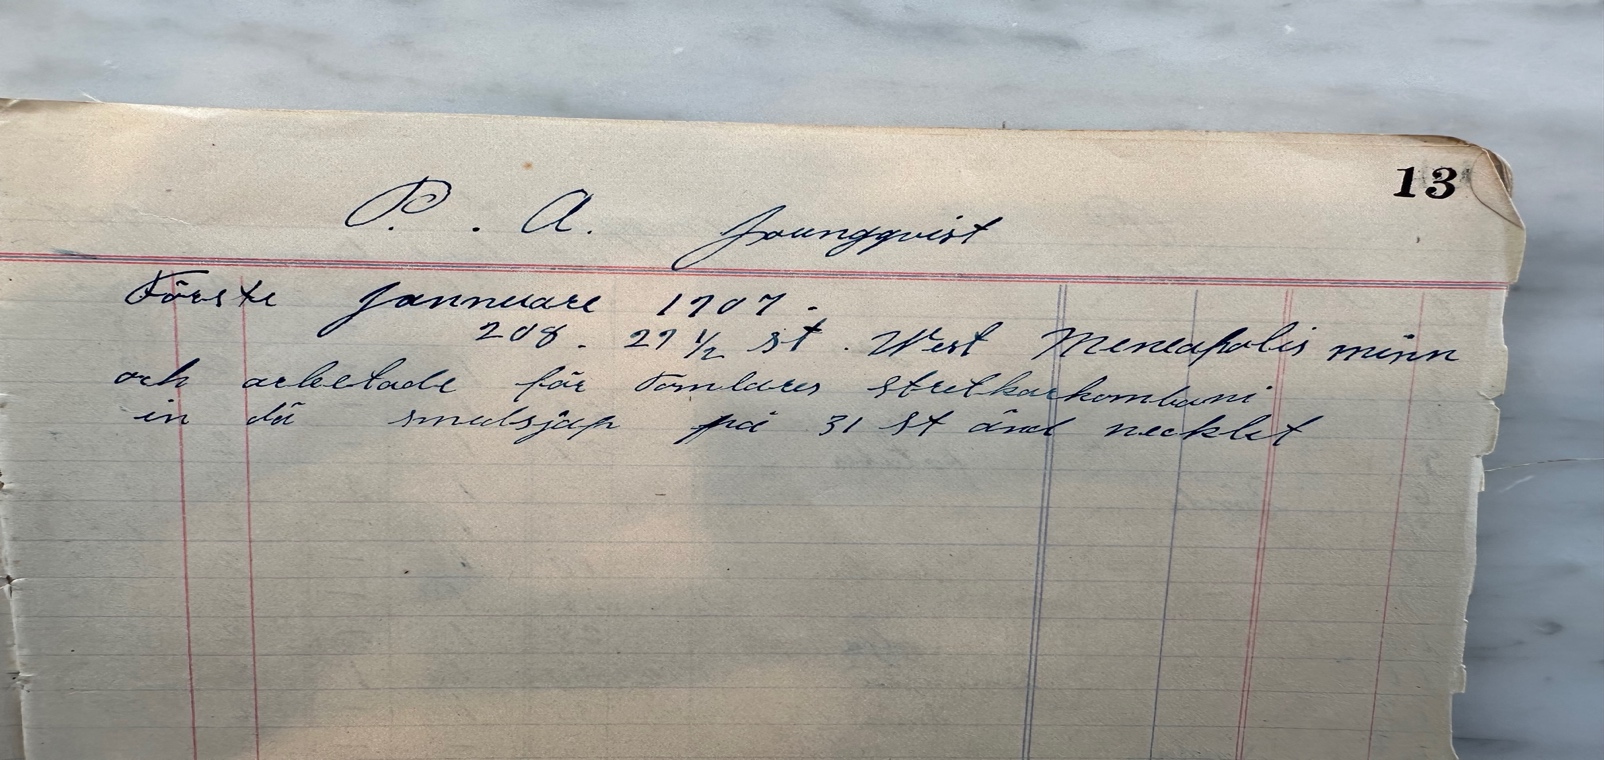 13
P. . A. Joungqvist
Förste Jannuare 1907.
208. 27 1/2 st. West Meneapolis minn
och arbetade för Tomlares stretkarkombani
in då smedsjap på 31 st änd necklet